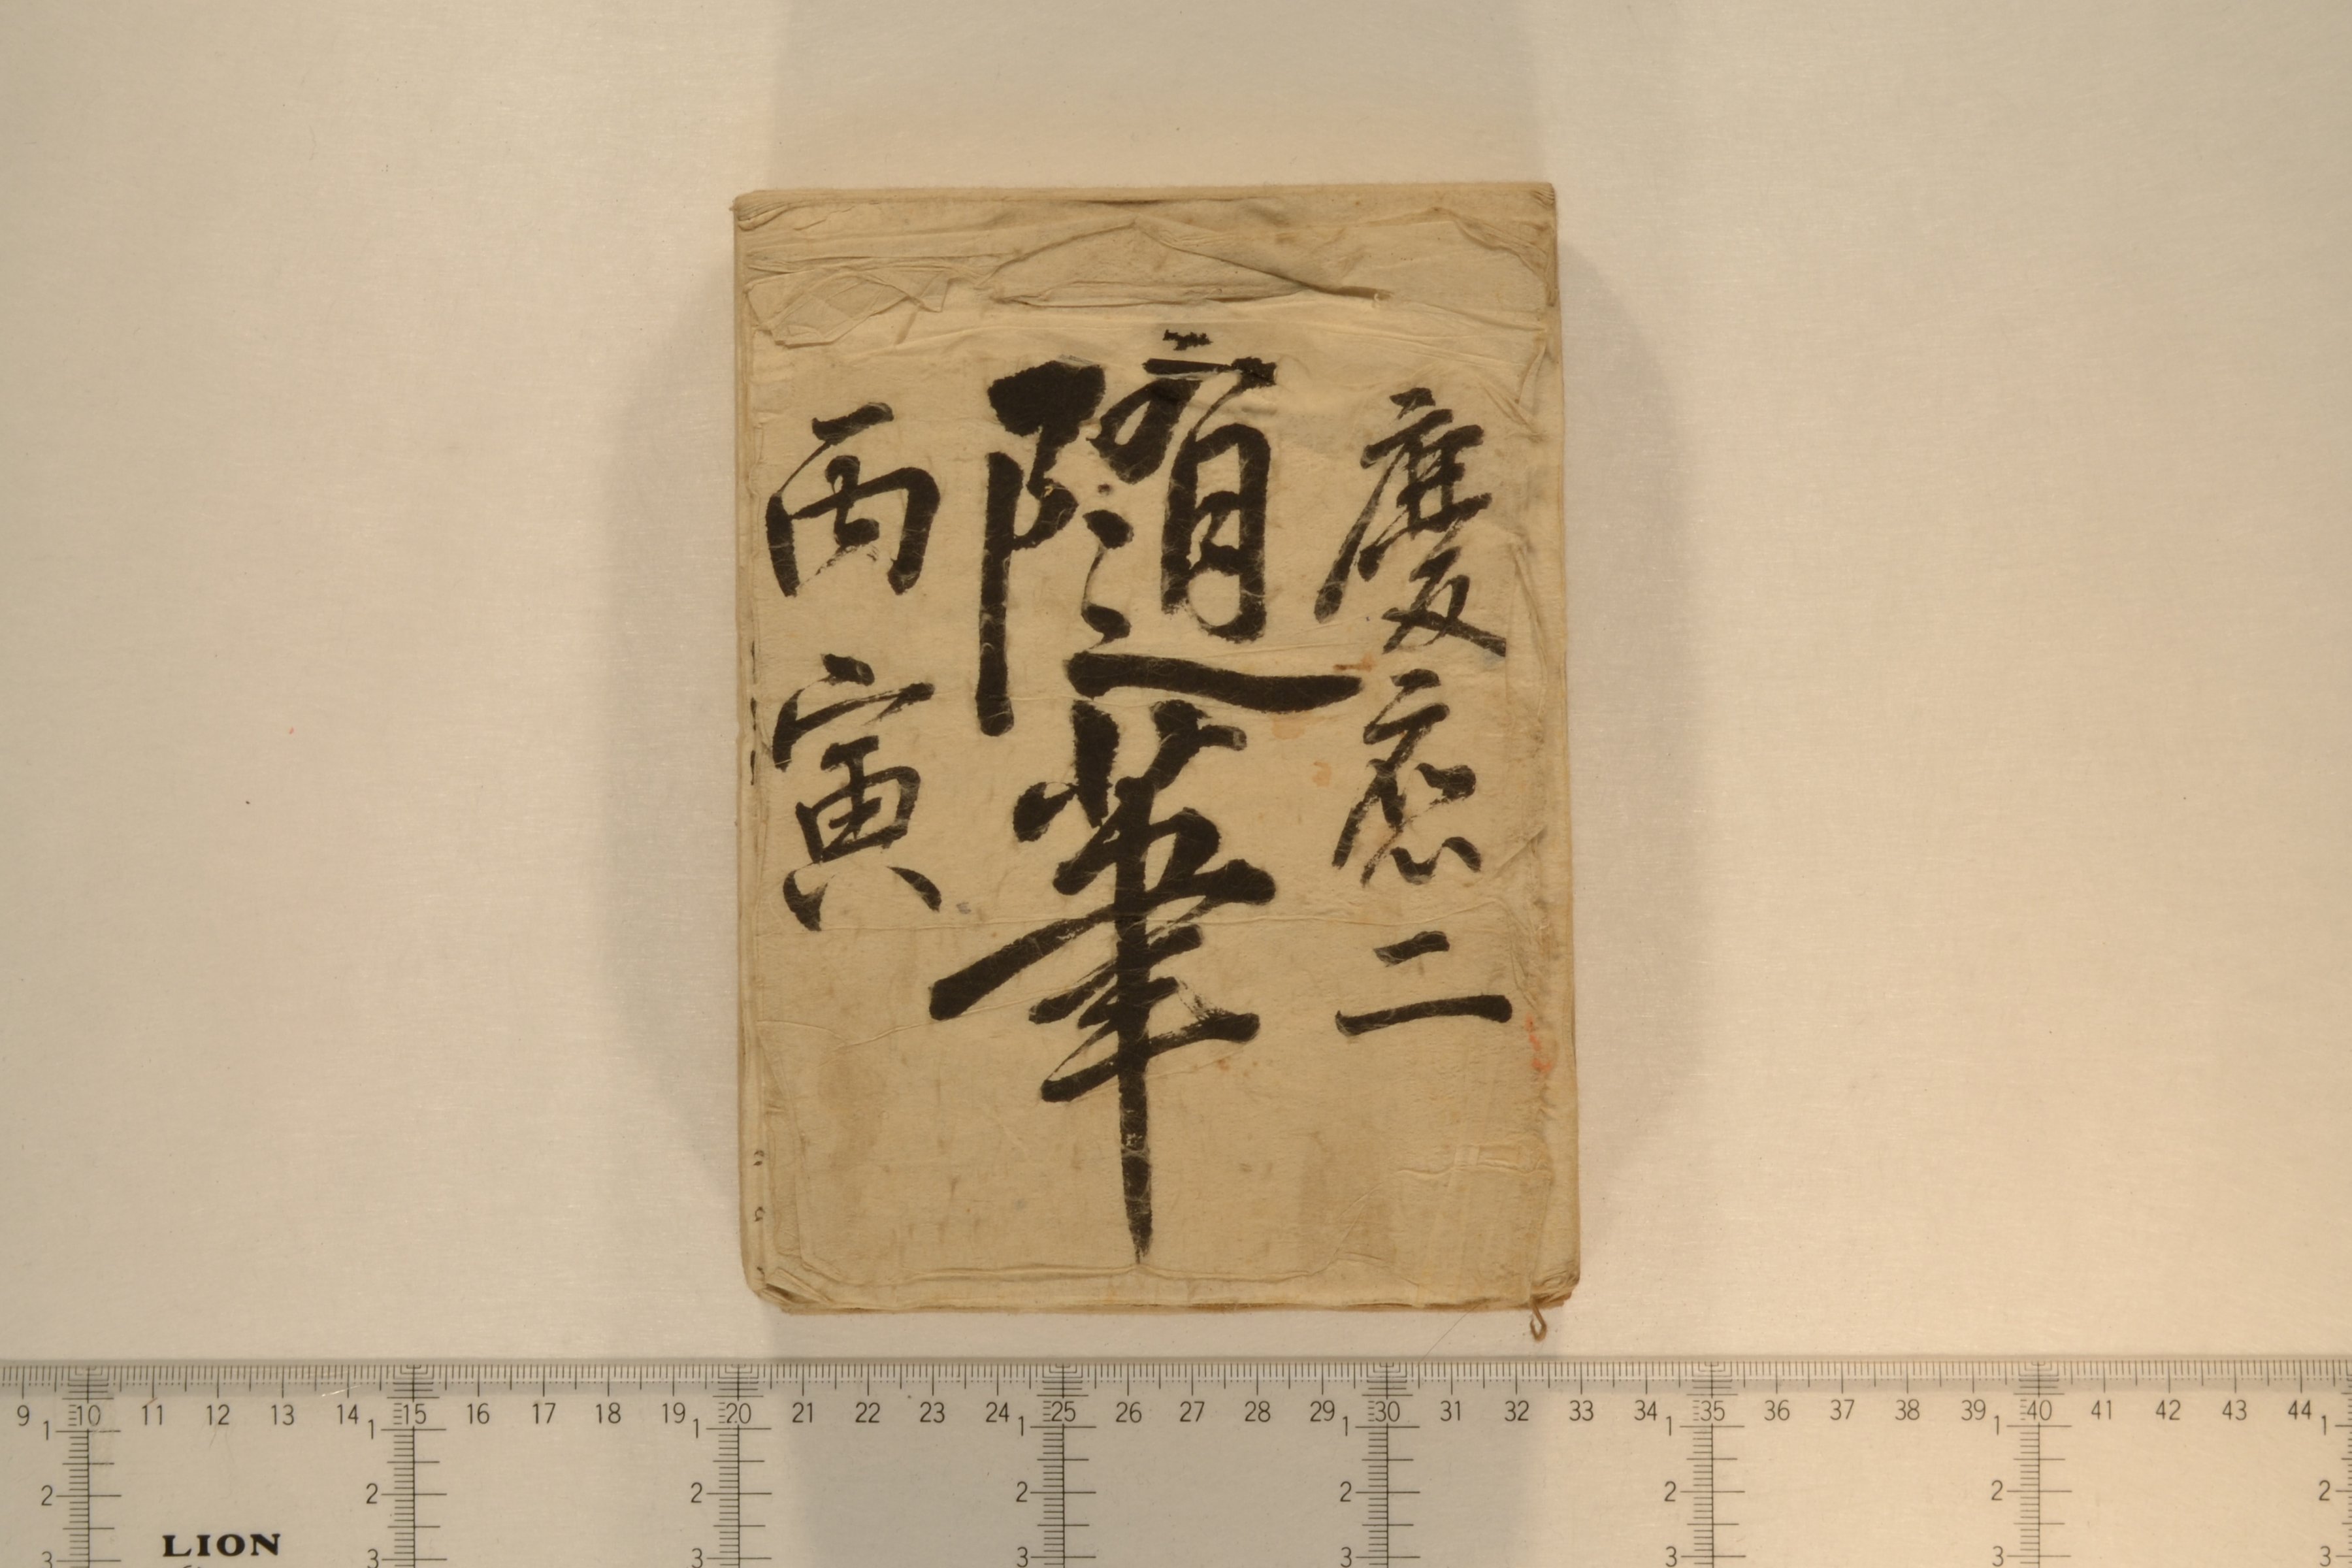 慶應二
随筆
丙寅
9 10 11 12 13 14 15 16 17 18 19 20 21 22 23 24 25 26 27 28 29 30 31 32 33 34 35 36 37 38 39 40 41 42 43 44
1 1 1 1 1 1 1 1
2 2 2 2 2 2 2 2
LION
3 3 3 3 3 3 3 3